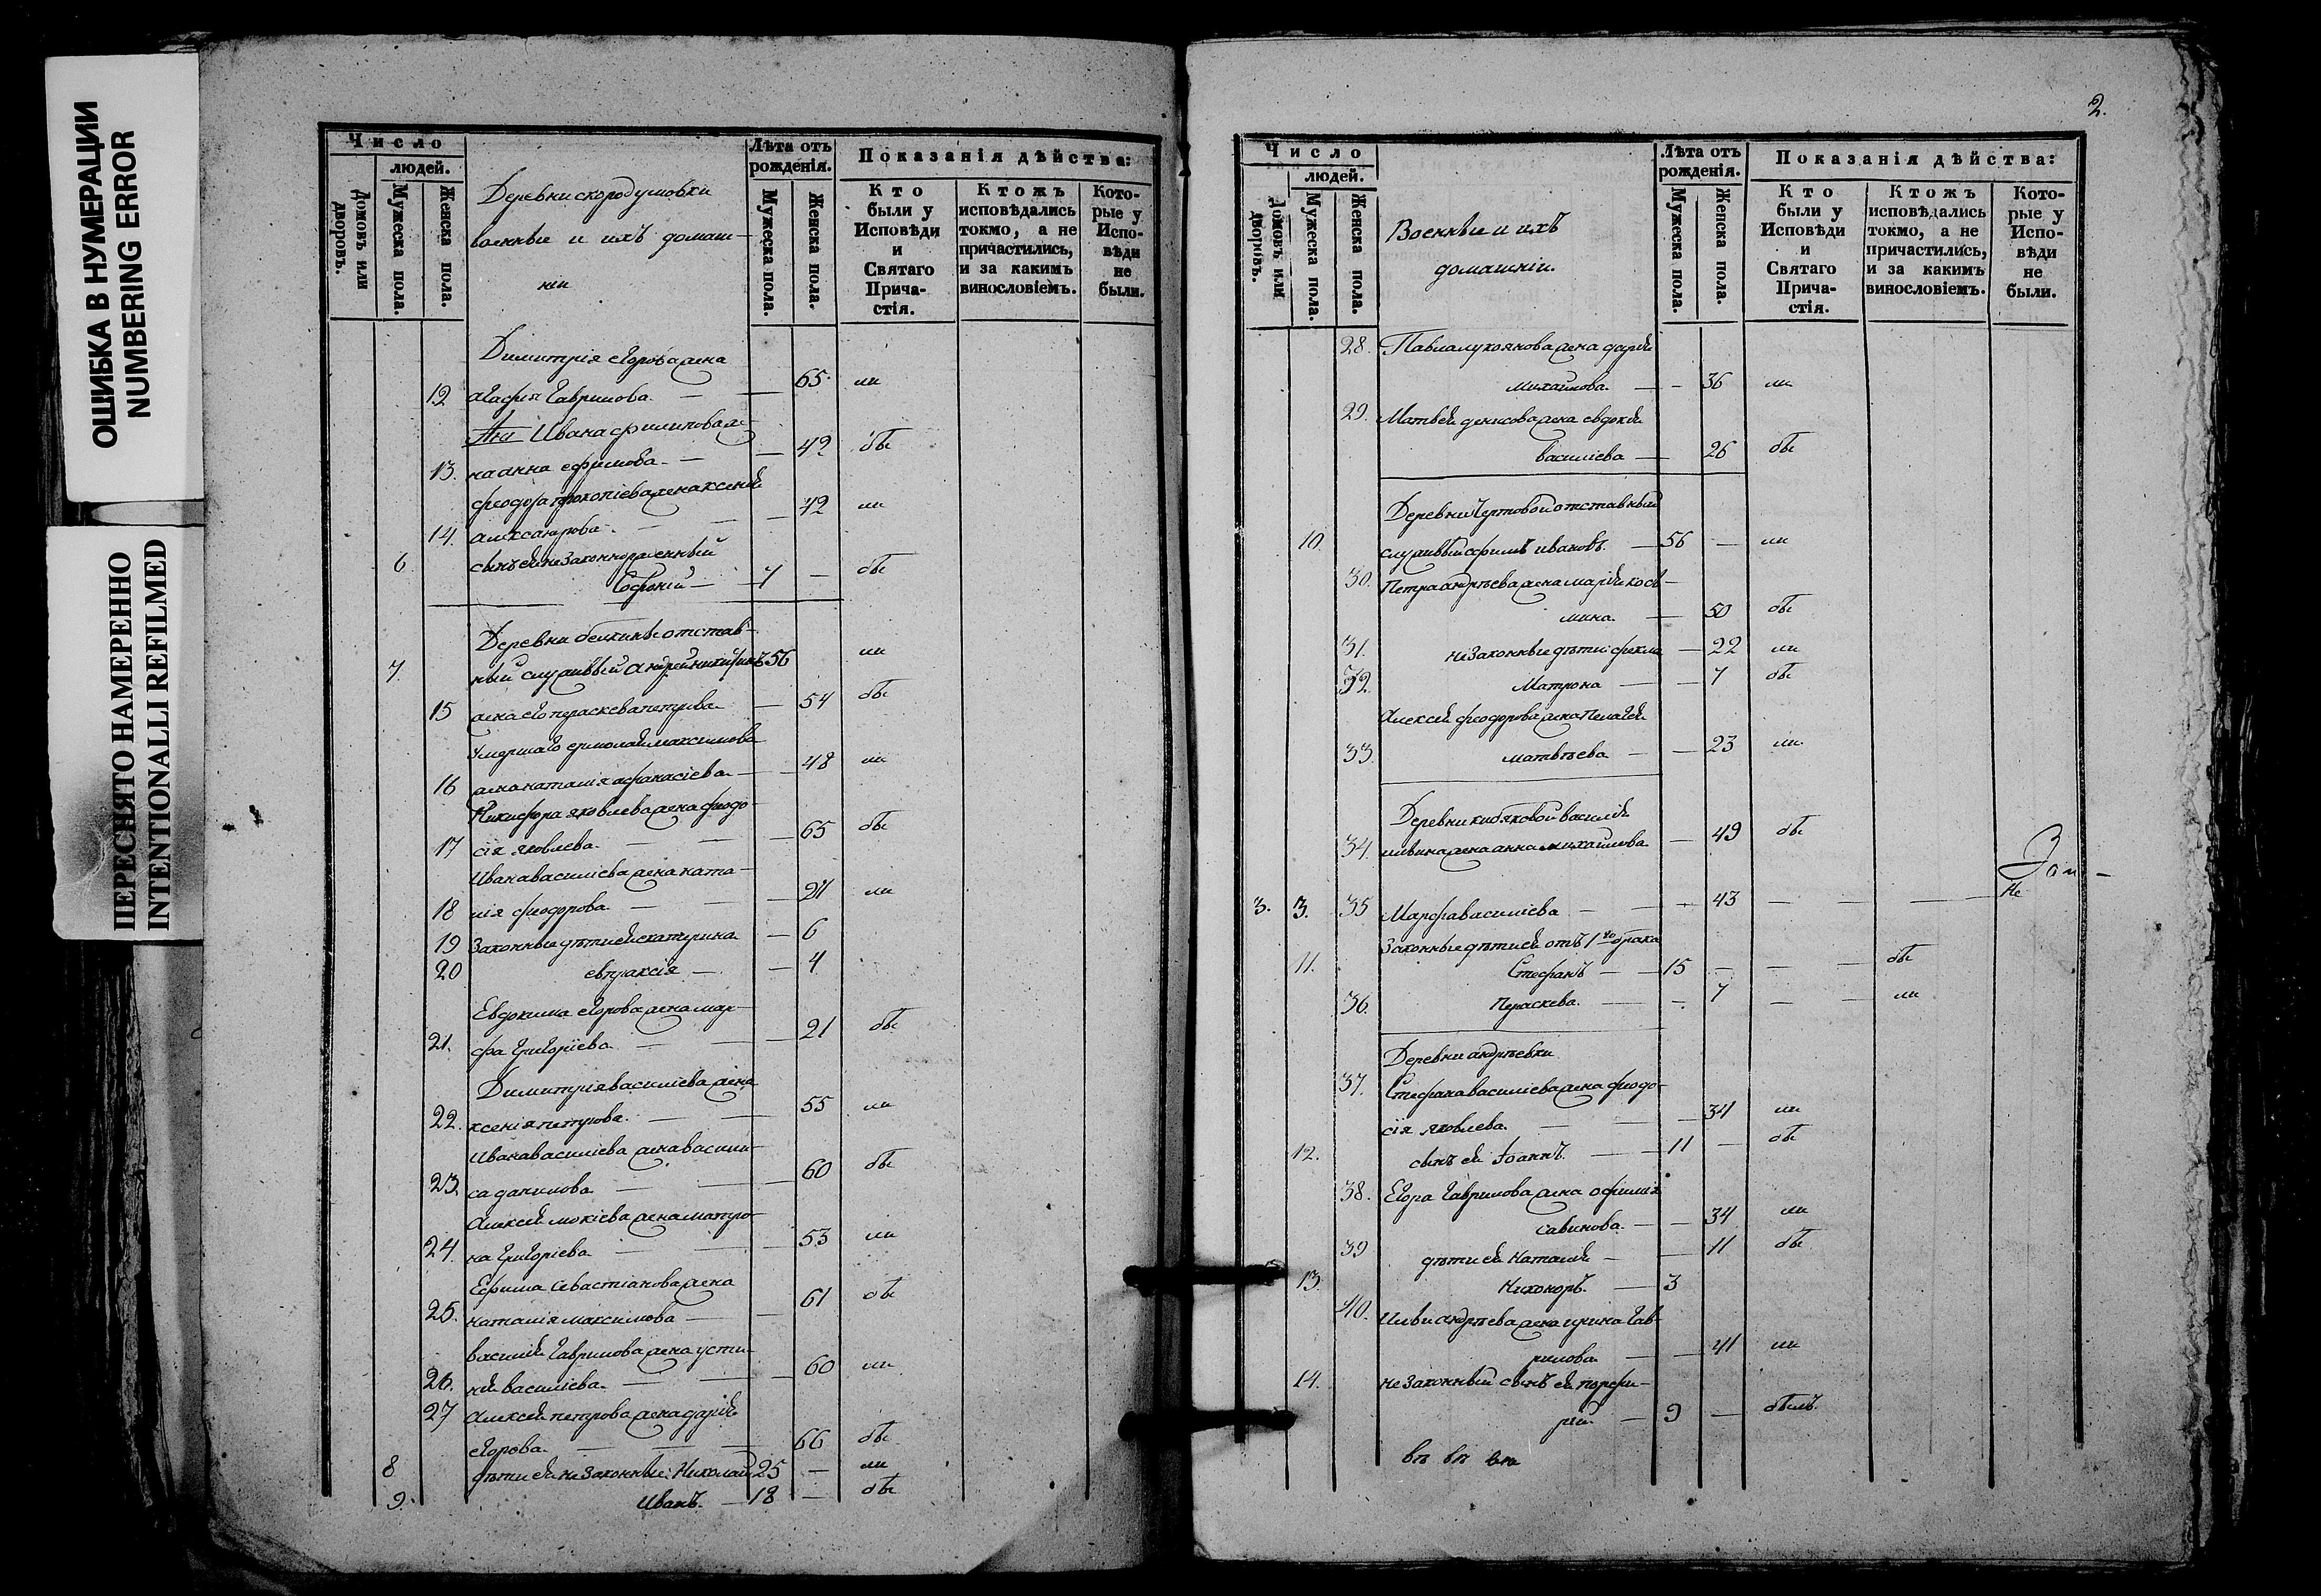 ОШИБКА В НУМЕРАЦИИ
NUMBERING ERROR
ПЕРЕСНЯТО НАМЕРЕННО
INTENTIONALLI REFILMED
Число
людей.
Домовъ или дворовъ.
Мужеска пола.
Женска пола.
Деревни скородумовки
военные и ихъ домаш-
нии
Лѣта отъ рожденія.
Мужеска пола.
Женска пола.
Показанія дѣйства:
Кто были у Исповѣди и Святаго Прича-стія.
Ктожъ исповѣдались токмо, а не причастились, и за какимъ винословіемъ.
Кото-рые у Испо-вѣди не были.
Димитрія егорова жена
12 агафія гаврилова — 65 ли
Ивана филипова же-
13. на анна ефимова — 42 бы
феодора прокопіева жена ксенія
14. александрова — 42 ли
6 сынъ ей незаконнорожденный
Софоній — 7 — бы
Деревни белкины отстав-
7. ный служивый андрей никифоровъ 56 ли
15 жена его пераскева петрова — 54 бы
Умершаго ермолая максимова
16 жена наталія афанасіева — 48 ли
Никифора яковлева жена феодо-
17 сія яковлева — 65 бы
Ивана василіева жена ната-
18 лія феодорова — 27 ли
19 Законные дѣти ей екатерина — 6
20 евпраксія — 4
Евдокима егорова жена мар-
21. фа григоріева — 21 бы
Димитрія василіева жена
22. ксенія петрова — 55 ли
Ивана василіева жена васили-
23. са данилова — 60 бы
Алексѣй мокіева жена матро-
24. на григоріева — 53 ли
Ефима севастіанова жена
25. наталія максимова — 61 бы
василій гаврилова жена усти-
26. нія василіева — 60 ли
27 Алексѣй петрова жена дарія
егорова — 66 бы
8 дѣти ей незаконные: Николай 25 — ли
9. Иванъ — 18 — бы
2.
Число
людей.
Домовъ или дворовъ.
Мужеска пола.
Женска пола.
Военные и ихъ
домашніи.
Лѣта отъ рожденія.
Мужеска пола.
Женска пола.
Показанія дѣйства:
Кто были у Исповѣди и Святаго Прича-стія.
Ктожъ исповѣдались токмо, а не причастились, и за какимъ винословіемъ.
Кото-рые у Испо-вѣди не были.
28. Павла лукоянова жена дарія
михайлова — 36 ли
29. Матвей денисова жена евдокія
василіева — 26 бы
Деревни Чертовой отставный
10. служивый ефимъ ивановъ — 56 — ли
30. Петра андрѣева жена марія кось-
мина — 50 бы
31. незаконные дѣти: фекла — 22 ли
32. Матрона — 7 бы
Алексѣй феодорова жена Пелагея
33. матвѣева — 23 ли
Деревни кибяковой василій
34. ильина жена анна михайлова — 49 бы
3. 3. 35 Марфа василіева — 43 — — Не
Законные дѣти ей отъ 1го брака
11. Стефанъ — 15 — — бы
36. Пераскева — 7 — ли
Деревни андрѣевки
37. Стефана василіева жена феодо-
сія яковлева — 34 ли
12. сынъ ей Іоаннъ — 11 — бы
38. Егора гаврилова жена офимія
савинова — 34 ли
39 дѣти ей наталія — 11 бы
13. Никоноръ — 3
40. Ильи андрѣева жена ирина гав-
рилова — 41 ли
14. незаконный сынъ ей порфи-
рій — 9 — былъ